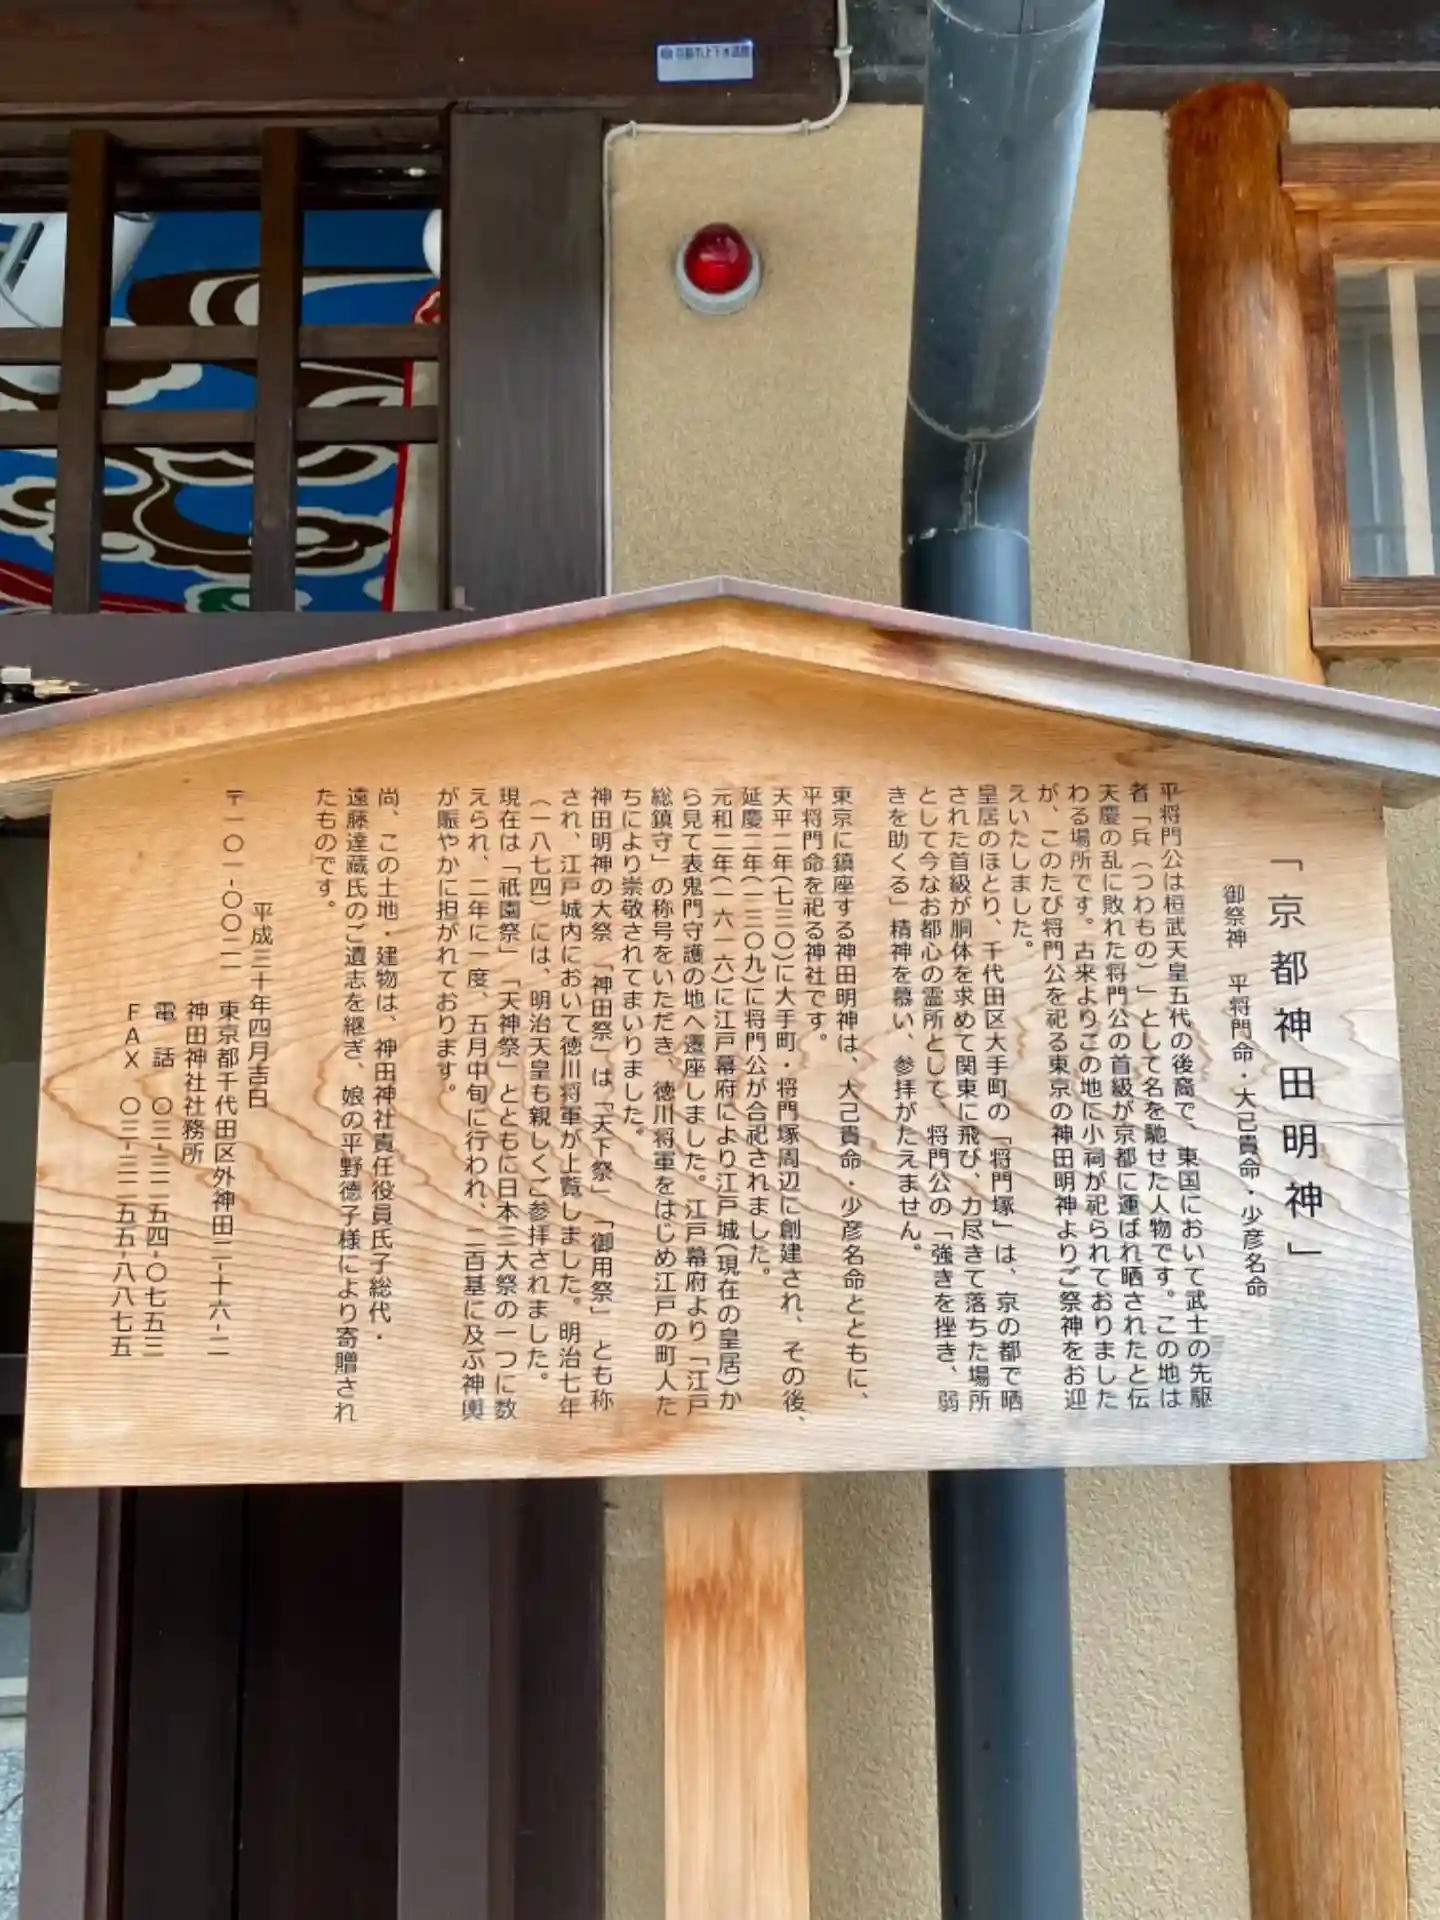 京都市上下水道局
「京都神田明神」
御祭神 平将門命・大己貴命・少彦名命
平将門公は桓武天皇五代の後裔で、東国において武士の先駆
者「兵（つわもの）」として名を馳せた人物です。この地は
天慶の乱に敗れた将門公の首級が京都に運ばれ晒されたと伝
わる場所です。古来よりこの地に小祠が祀られておりました
が、このたび将門公を祀る東京の神田明神よりご祭神をお迎
えいたしました。
皇居のほとり、千代田区大手町の「将門塚」は、京の都で晒
された首級が胴体を求めて関東に飛び、力尽きて落ちた場所
として今なお都心の霊所として、将門公の「強きを挫き、弱
きを助くる」精神を慕い、参拝がたえません。
東京に鎮座する神田明神は、大己貴命・少彦名命とともに、
平将門命を祀る神社です。
天平二年(七三〇)に大手町・将門塚周辺に創建され、その後、
延慶二年(一三〇九)に将門公が合祀されました。
元和二年(一六一六)に江戸幕府により江戸城(現在の皇居)か
ら見て表鬼門守護の地へ遷座しました。江戸幕府より「江戸
総鎮守」の称号をいただき、徳川将軍をはじめ江戸の町人た
ちにより崇敬されてまいりました。
神田明神の大祭「神田祭」は「天下祭」「御用祭」とも称
され、江戸城内において徳川将軍が上覧しました。明治七年
（一八七四）には、明治天皇も親しくご参拝されました。
現在は「祇園祭」「天神祭」とともに日本三大祭の一つに数
えられ、二年に一度、五月中旬に行われ、二百基に及ぶ神輿
が賑やかに担がれております。
尚、この土地・建物は、神田神社責任役員氏子総代・
遠藤達蔵氏のご遺志を継ぎ、娘の平野徳子様により寄贈され
たものです。
平成三十年四月吉日
〒一〇一-〇〇二一 東京都千代田区外神田二-十六-二
神田神社社務所
電話 〇三-三二五四-〇七五三
FAX 〇三-三二五五-八八七五